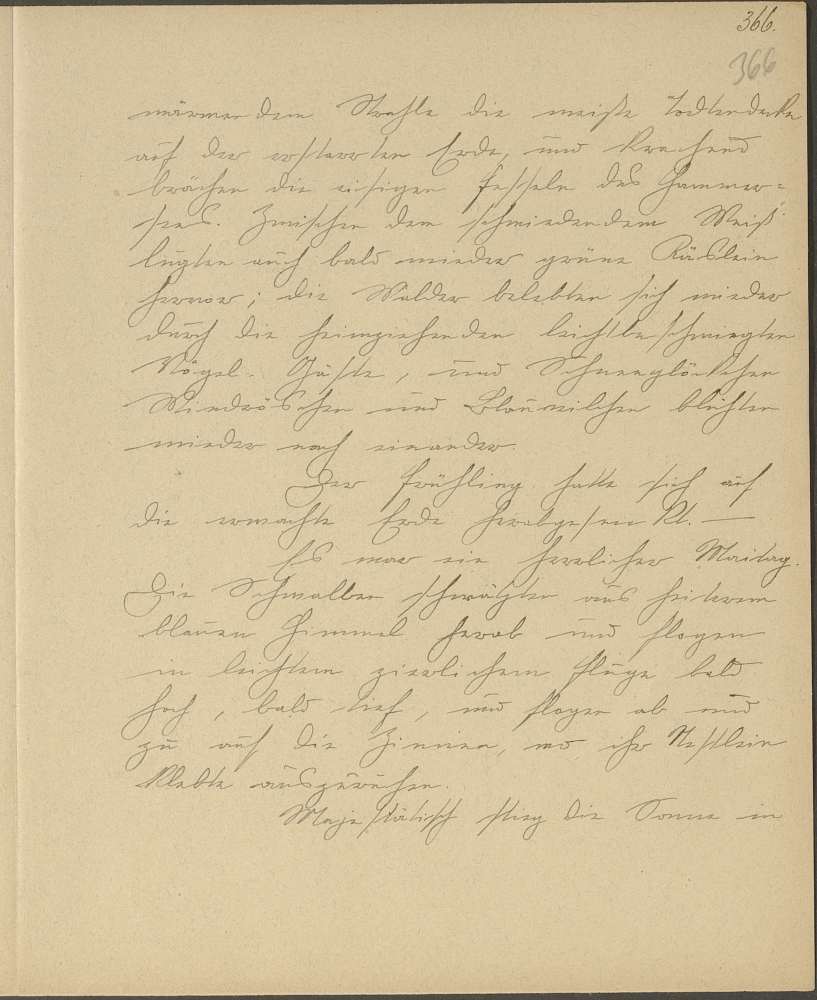 366.
366
wärmerdem Strahle die weiße Todtendecke
auf der erstarrten Erde, und krachend
brächen die eisigen Fesseln des Hammer-
sees. Zwischen dem schmiedendem Weiß
lugten auch bald wieder grüne Räslein
hervor; die Wälder belebten sich wieder
durch die heimziehenden leichtbeschwingten
Vögel-Gäste, und Schneeglöckchen
Windröschen und Blauveilchen blühten
wieder nach einander.
Der Frühling hatte sich auf
die erwachte Erde herabgesenkt. —
Es war ein herrlicher Maitag.
Die Schwalben schwätzten aus heiterem
blauen Himmel herab und flogen
in leichtem zierlichem Fluge bald
hoch, bald tief, und flogen ab und
zu auf die Zinnen, wo ihr Nestlein
klebte auszuruhen.
Majestätisch stieg die Sonne in